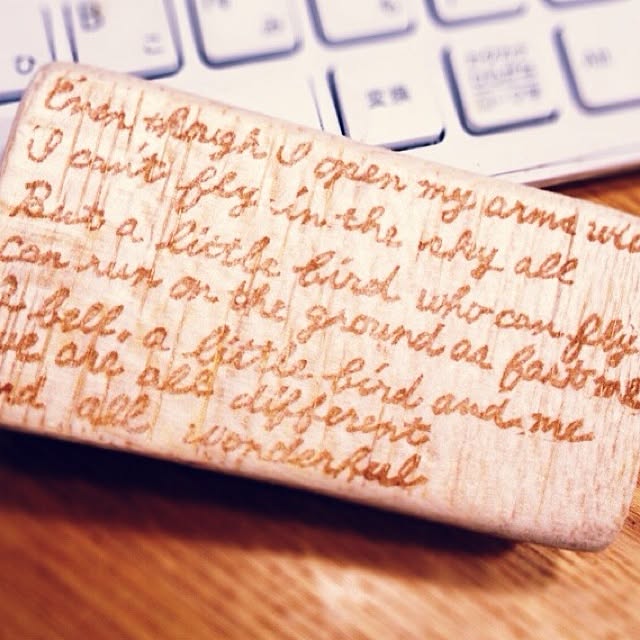 B こ
変換
Even though I open my arms
I can't fly in the sky all
But a little bird who can fly
can run on the ground as fast
a bell, a little bird and me
are all different
all wonderful